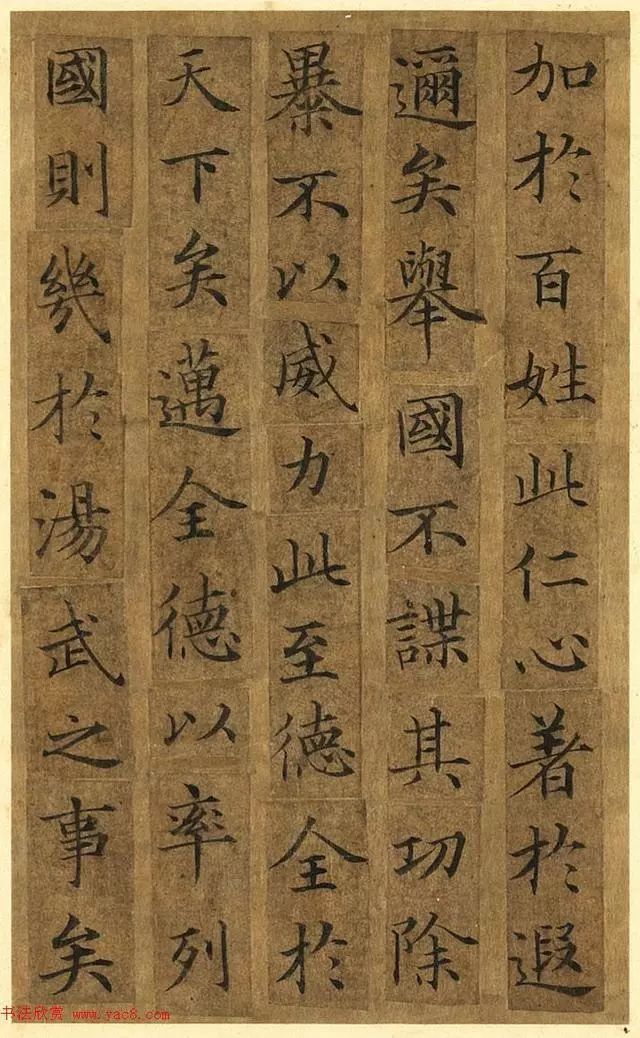 加於百姓此仁心著於遐
邇矣舉國不謀其功除
暴不以威力此至德全於
天下矣邁全德以率列
國則幾於湯武之事矣
书法欣赏 www.yac8.com